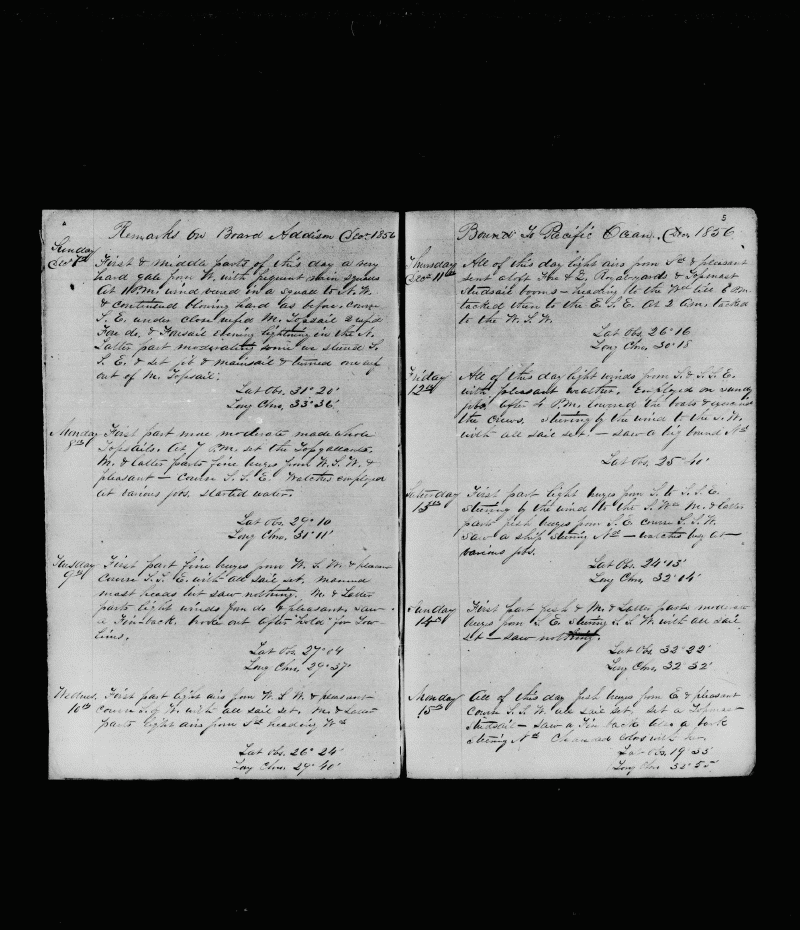 Remarks on Board Addison Dec. 1856
Sunday
Dec 7th
First & Middle parts of this day a very
hard gale from W. with frequent rain squalls
At 11 P.M. wind hauld in a squall to N.W.
& continued blowing hard as before. course
S. E. under close reefd M. Topsail
Fore do. & Foresail lightning in the N.
Latter part moderating some we steerd S.
S. E. & set jib & mainsail & turned one reef
out of M. Topsail.
Lat Obs. 31° 20'
Long Chro. 33° 36'
Monday
8th
First part more moderate made whole
Topsails. At P.M. set the Topgallants.
M. & latter parts fine breezes from W. S. W. &
pleasant — Course S. S. E. Watches employed
at various jobs. started water.
Lat Ob. 29° 10
Long Chro. 31° 11'
Tuesday
9th
First part fine breezes from W. S. W. &
Course S. S. E. with all sail set. manned
mast heads but saw nothing. M. & Latter
parts light winds from do & pleasant. Saw
a Finback. Broke out after hold for Tow-
lines.
Lat Obs. 27° 04
Long Chro. 29° 37'
Wednes.
10th
First part light airs from W. S. W. & pleasant
Course S. by W. with all sail set. M. & Latter
parts light airs from Sd heading Wd
Lat Obs. 26° 24'
Long Chro. 29° 40'
5
Bound To Pacific Ocean. Dec. 1856
Thursday
Dec 11th
All of this day light airs from Sd & pleasant
sent aloft Royalyards & Topmast
Studsail booms — heading to the Wd till 8 P.M.
tacked then to the E. S. E. At 2 A.M. tacked
to the W. S. W.
Lat Obs. 26° 16
Long Chro. 30° 18
Friday
12th
All of this day light winds from S. & S. S. E.
with pleasant weather. Employed on sundry
jobs. after 4 P.M. lowered the boats & exercised
the Crews. steering by the wind to the S. W.
with all sail set. — Saw a brig bound Nd
Lat Obs. 25° 40'
Saturday
13th
First part light breezes from S. to S. S. E.
steering by the wind to the S. Wd M. & latter
parts fresh breezes from S. E. course S. S. W.
Saw a ship steering Nd — watches busy at
various jobs.
Lat Obs. 24° 13'
Long Chro. 32° 04'
Sunday
14th
First part fresh & M. & Latter parts moderate
breezes from S. E. steering S. S. W. with all sail
set — saw nothing.
Lat Obs. 22° 22'
Long Chro. 32° 32'
Monday
15th
All of this day fresh breezes from E. & pleasant
Course S. S. W. all sail set. set a Topmast
Studsail — Saw a Fin back also a bark
steering Nd Changed colors with her.
Lat Obs. 19° 55'
Long Chro. 32° 55'